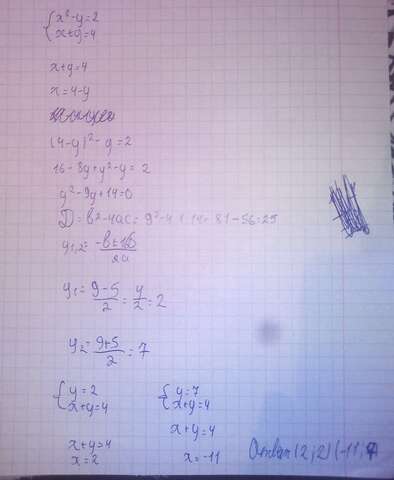 {x²-y=2
{x+y=4
x+y=4
x=4-y
(4-y)²-y=2
16-8y+y²-y=2
y²-9y+14=0
D=b²-4ac=9²-4·1·14=81-56=25
y₁,₂=-b±√D/2a
y₁=9-5/2=4/2=2
y₂=9+5/2=7
{y=2 {y=7
{x+y=4 {x+y=4
x+y=4 x+y=4
x=2 x=-11 (2;2)(-11;7)